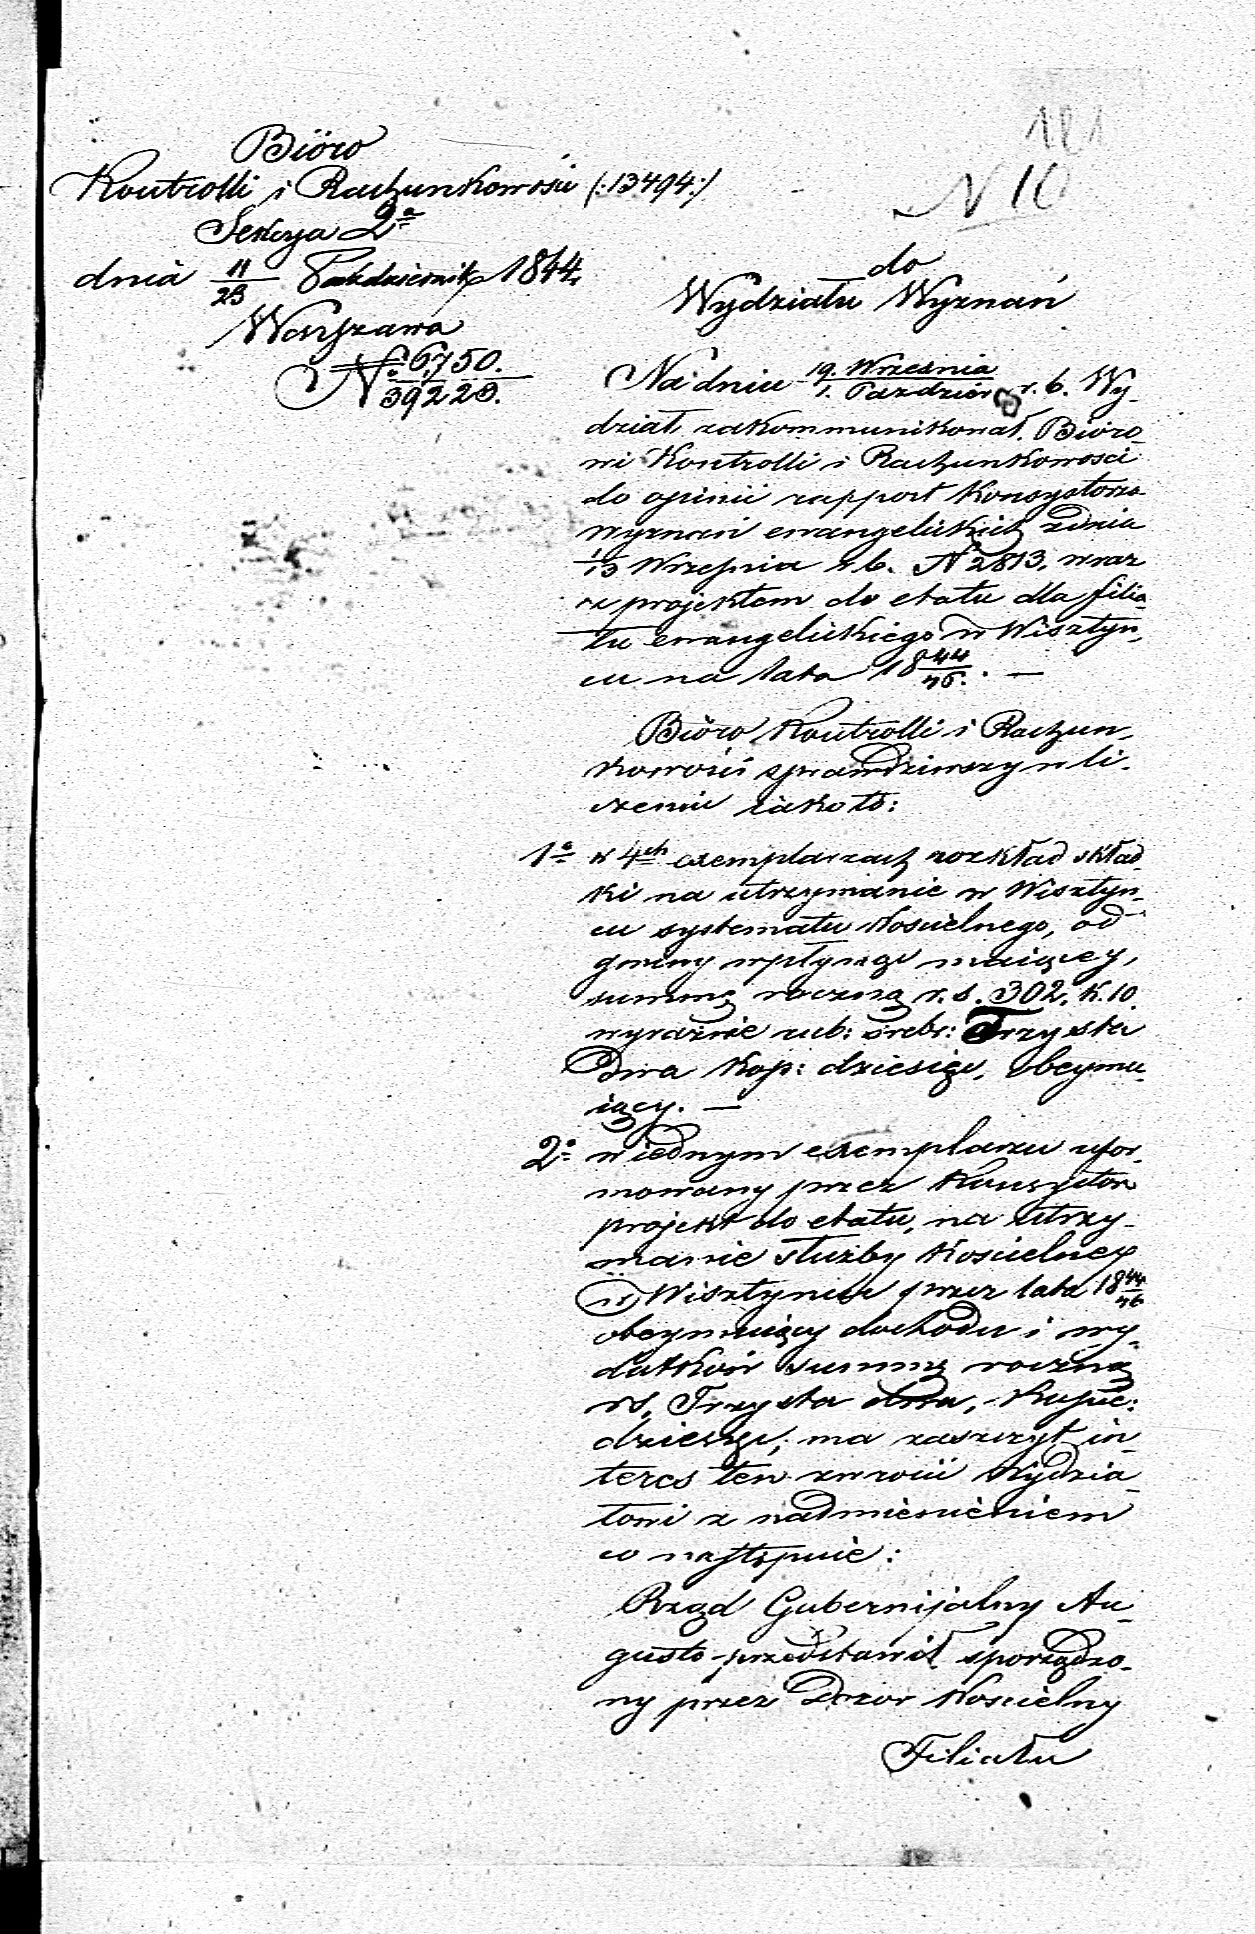 181
N 10
Biöro
Kontrolli i Rachunkowości (:13494:)
Sekcya 2a
dnia 11/23 Październik 1844.
Warszawa
N. 6,750. / 39223.
do
Wydziału Wyznań
Na dniu 19. Września / 1. Paździer r. b. Wy-
dział zakommunikował Bióro-
wi Kontrolli i Rachunkowości
do opinii rapport Konsystorza
wyznań ewangelickich z dnia
1/13 Września r. b. N 2813. wraz
z projektem do etatu dla filia-
łu ewangelickiego w Wisztyń-
cu na lata 1844/46. —
Biöro Kontrolli i Rachun-
kowości sprawdziwszy w li-
czeniu iako to:
1o w 4ch exemplarzach rozkład skład-
ki na utrzymanie w Wisztyń-
cu systematu kościelnego, od
gminy wpłynąć maiącey,
summę roczną r. s. 302. k. 10
wyraźnie rub: srebr: Trzysta
Dwa Kop: dziesięć, obeymu-
iący. —
2o w iednym exemplarzu ufor-
mowany przez Konsystorz
projekt do etatu, na utrzy-
manie służby Kościelney
w Wisztyńcu przez lata 1844/46
obeymuiący dochodu i wy-
datków summę roczną
rs. Trzysta dwa, Kopie:
dziesięć, ma zaszczyt in-
teres ten zwrócić Wydzia-
łowi z nadmienieniem
co następuie:
Rząd Gubernijalny Au-
gusto- przedstawił sporządzo-
ny przez Dozor Kościelny
Filiału